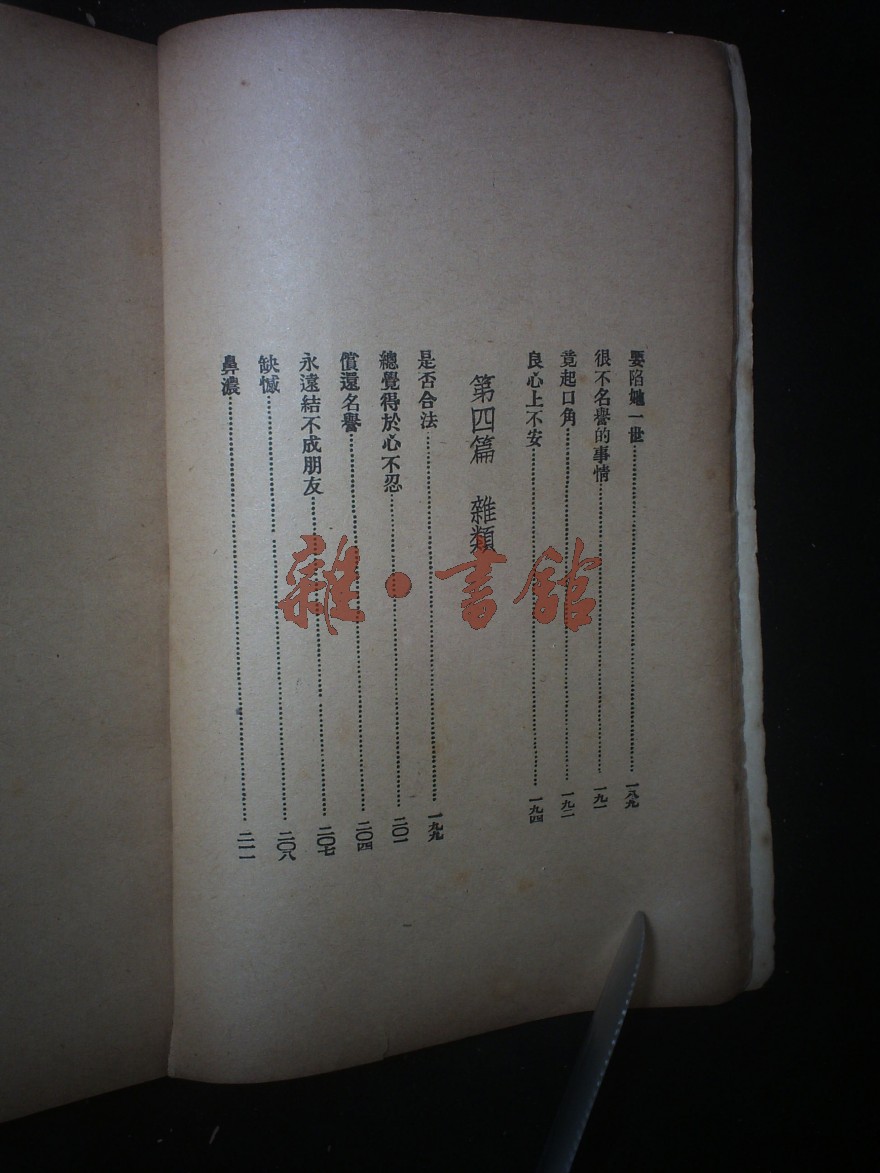 要陷她一世……一八九
很不名譽的事情……一九一
竟起口角……一九二
良心上不安……一九四
第四篇 雜類
是否合法……一九九
總覺得於心不忍……二〇一
償還名譽……二〇四
永遠結不成朋友……二〇七
缺憾……二〇八
鼻濃……二一一
雜·書館